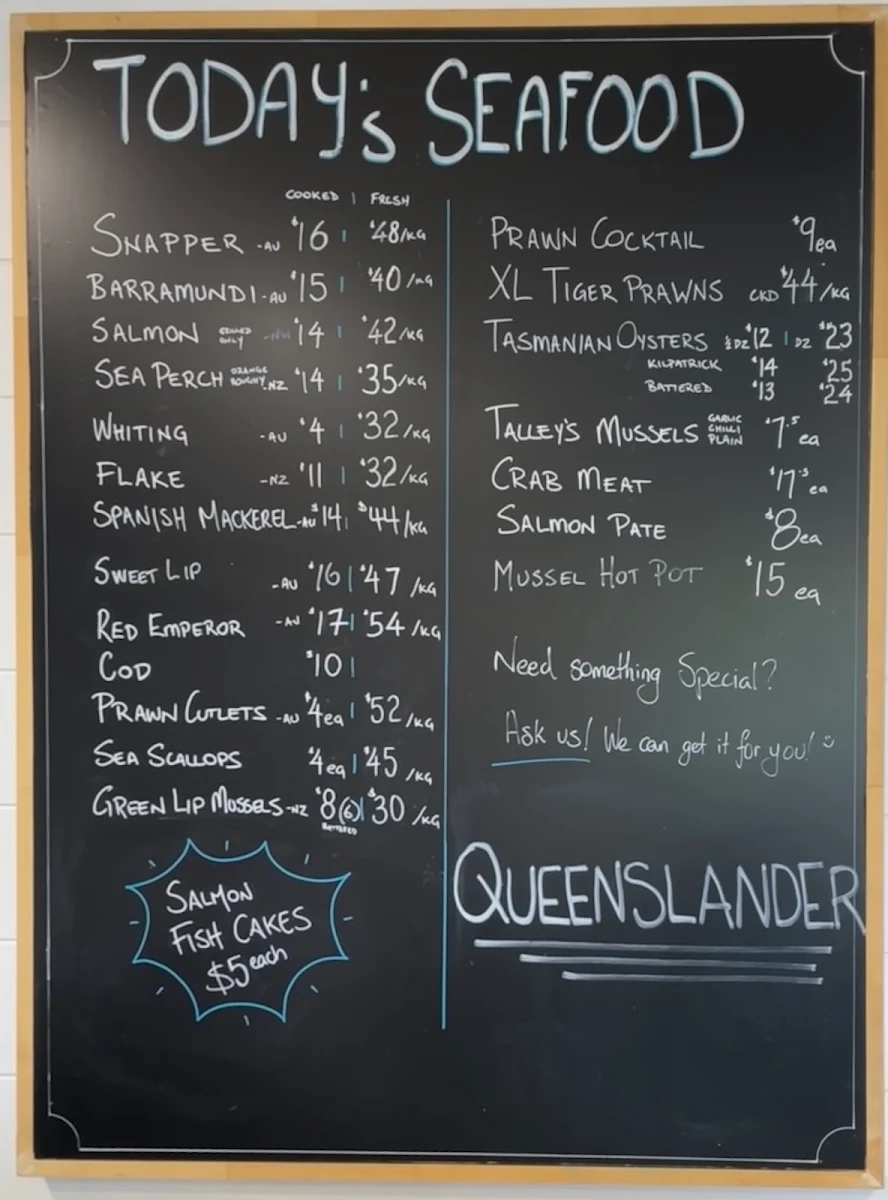 TODAY's SEAFOOD
COOKED | FRESH
SNAPPER -AU $16 | $48/KG
BARRAMUNDI -AU $15 | $40/KG
SALMON ONLY $14 | $42/KG
SEA PERCH ORANGE ROUGHY -NZ $14 | $35/KG
WHITING -AU $4 | $32/KG
FLAKE -NZ $11 | $32/KG
SPANISH MACKEREL -AU $14 | $44/KG
SWEET LIP -AU $16 | $47/KG
RED EMPEROR -AU $17 | $54/KG
COD $10 |
PRAWN CUTLETS -AU $4ea | $52/KG
SEA SCALLOPS $4ea | $45/KG
GREEN LIP MUSSELS -NZ $8(6) | $30/KG
BATTERED
SALMON
FISH CAKES
$5 each
PRAWN COCKTAIL $9ea
XL TIGER PRAWNS CKD $44/KG
TASMANIAN OYSTERS ½DZ $12 | DZ $23
KILPATRICK $14 $25
BATTERED $13 $24
TALLEY'S MUSSELS GARLIC CHILLI PLAIN $7.5 ea
CRAB MEAT $17.5 ea
SALMON PATE $8ea
MUSSEL HOT POT $15 ea
Need something Special?
Ask us! We can get it for you! :)
QUEENSLANDER